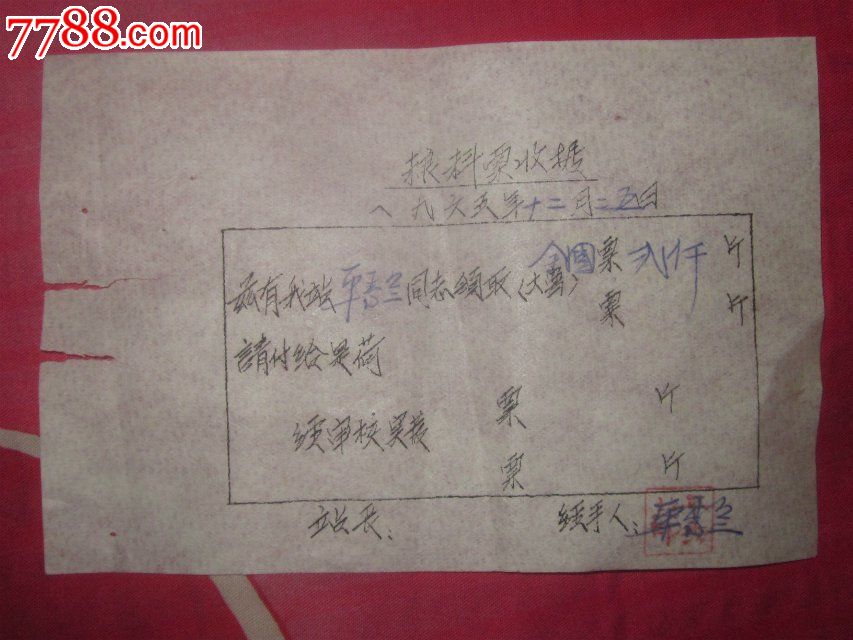 7788.com
粮料票收据
一九六五年十二月二五日
兹有我站
同志领取(大写)
全国票 贰仟 斤
票 斤
請付给是荷
经审校实发 票 斤
票 斤
站长:
经手人: